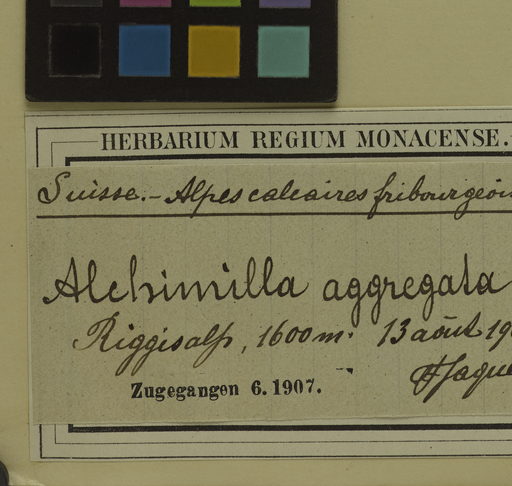 HERBARIUM REGIUM MONACENSE.
Suisse. - Alpes calcaires
Alchimilla aggregata
Riggisalp, 1600 m. 13 août
Zugegangen 6. 1907.